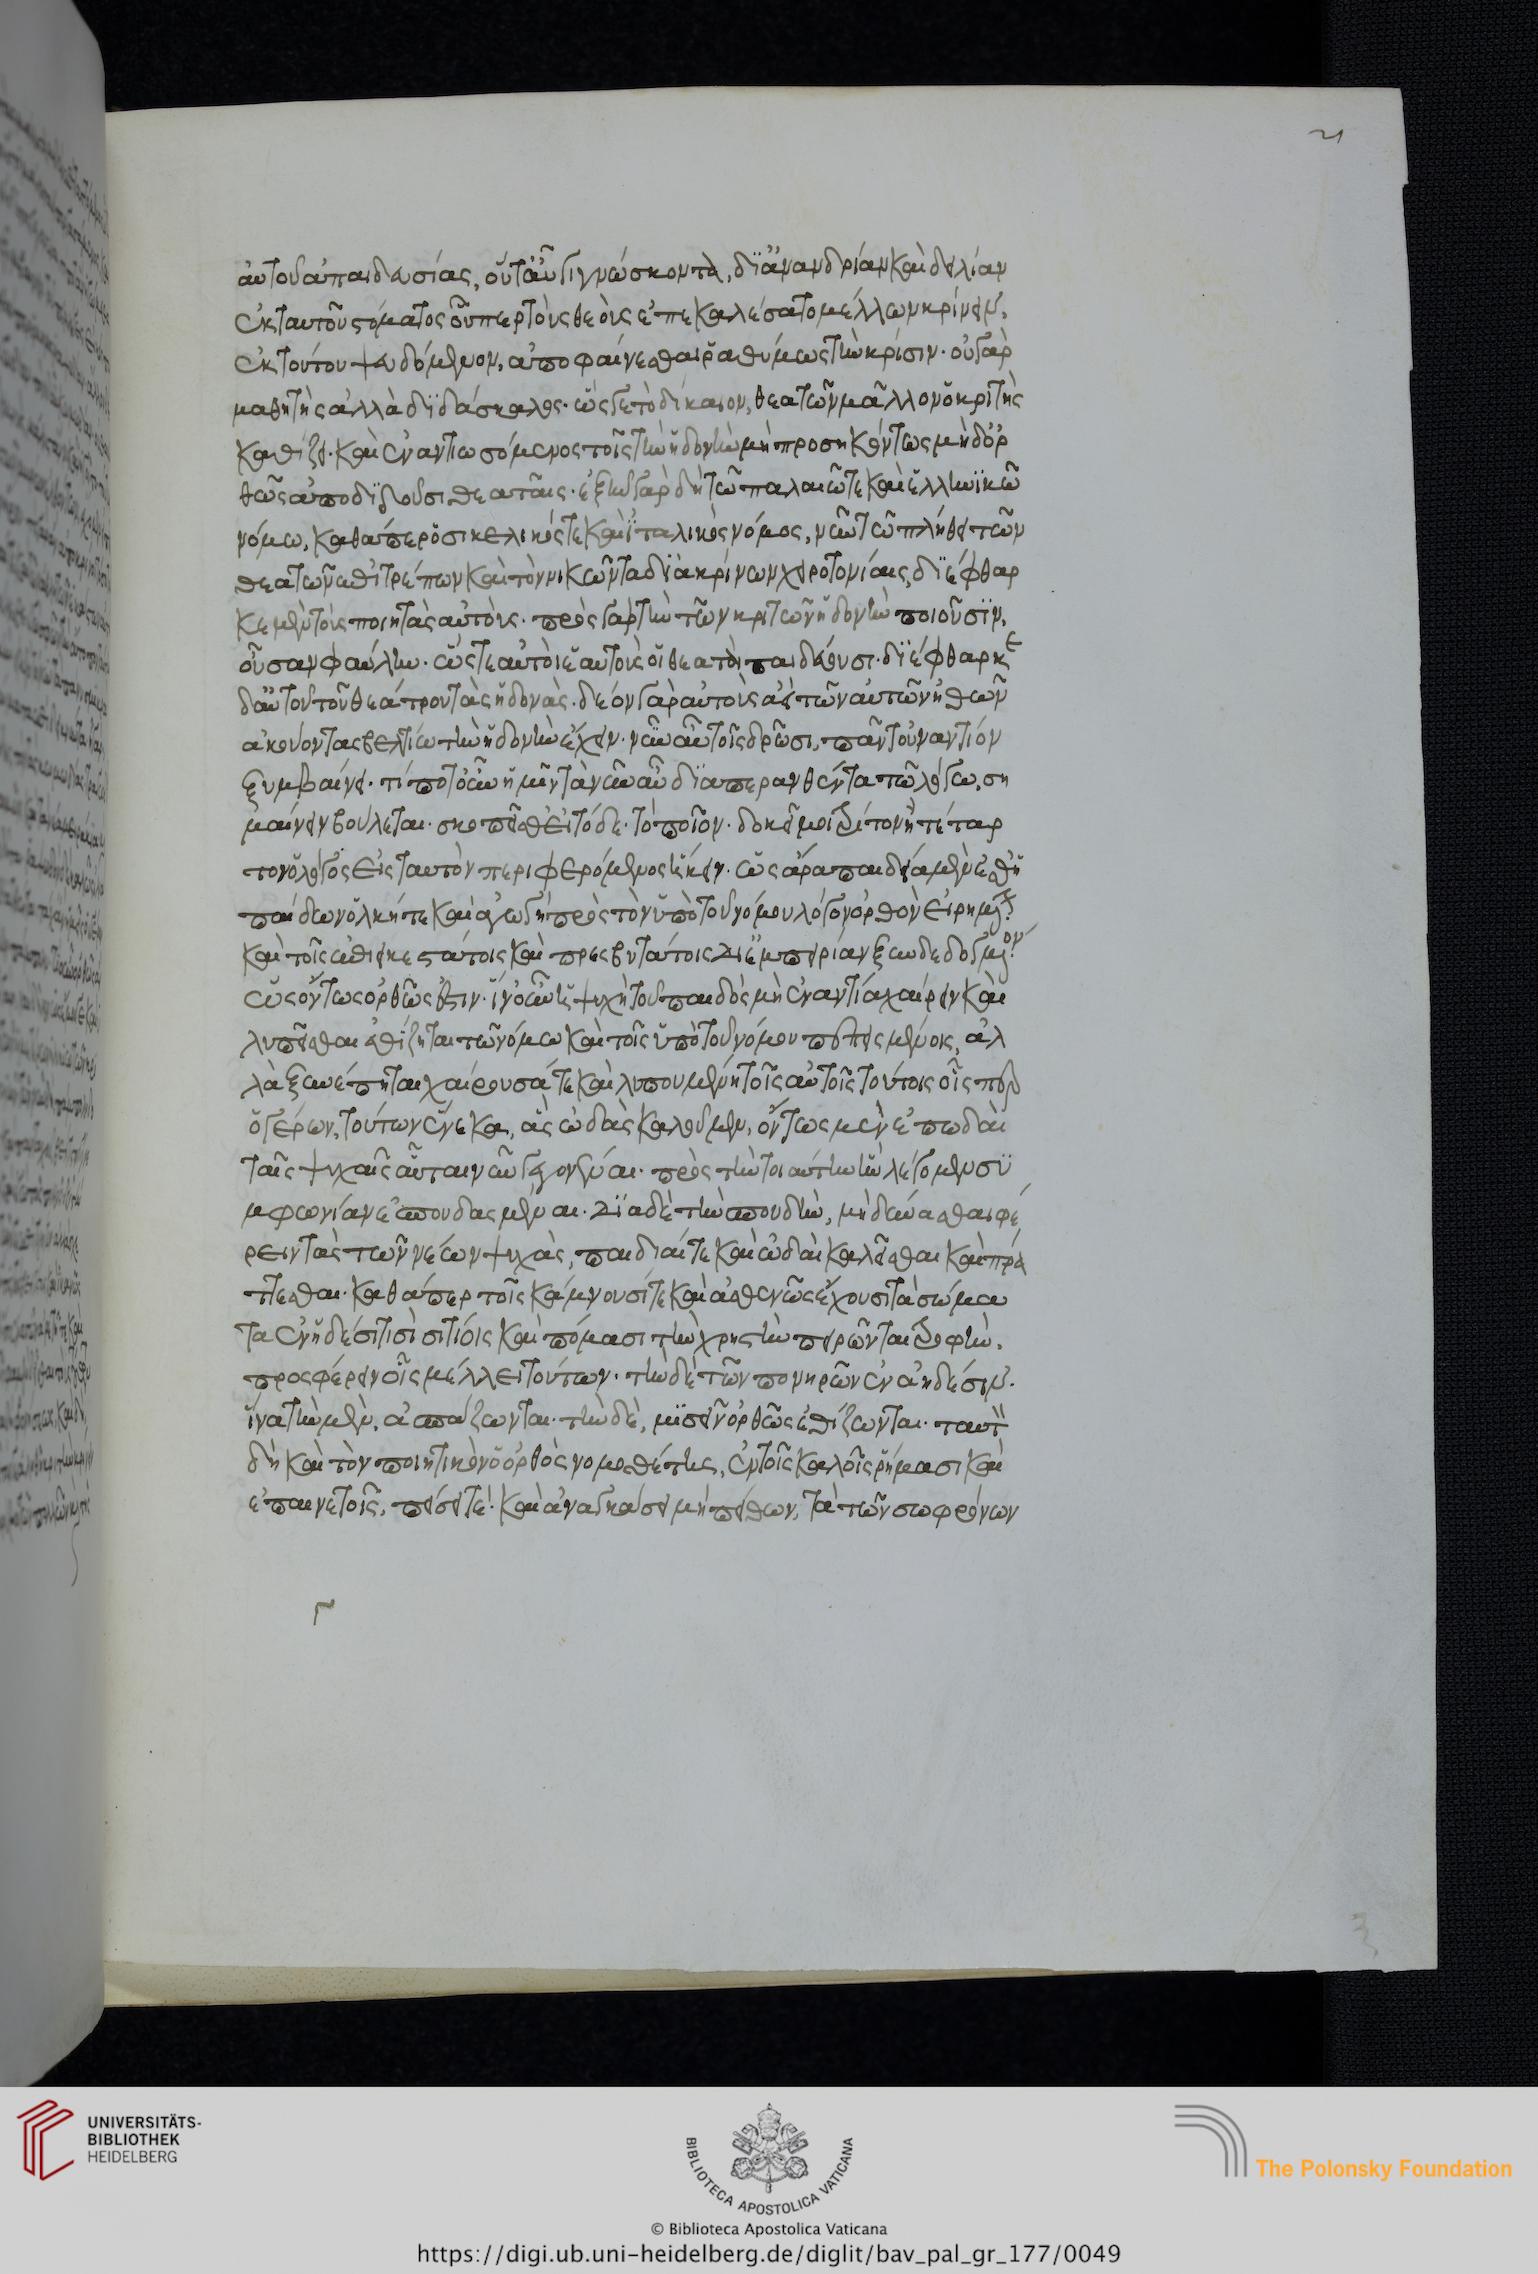 21
αὐτοῦ ἀπαιδευσίας, οὔτ' ἂν γιγνώσκοντα, δι' ἀνανδρίαν καὶ δειλίαν
ἐκ ταυτοῦ στόματος οὗπερ τοὺς θεοὺς ἐπεκαλέσατο μέλλων κρίνειν,
ἐκ τούτου ψευδόμενον, ἀποφαίνεσθαι ῥαθύμως τὴν κρίσιν· οὐ γὰρ
μαθητὴς ἀλλὰ διδάσκαλος· ὥς γε τὸ δίκαιον, θεατῶν μᾶλλον ὁ κριτὴς
καθίζει· καὶ ἐναντιωσόμενος τοῖς τὴν ἡδονὴν μὴ προσηκόντως μηδ' ὀρ
θῶς ἀποδιδοῦσι θεαταῖς· ἐξῆν γὰρ δὴ τῶ παλαιῶ τε καὶ ἑλληνικῶ
νόμω, καθάπερ ὁ σικελικός τε καὶ ἰταλικὸς νόμος, νῦν τῶ πλήθει τῶν
θεατῶν ἐπιτρέπων καὶ τὸν νικῶντα διακρίνων χειροτονίαις, διέφθαρ
κε μὲν τοὺς ποιητὰς αὐτούς· πρὸς γὰρ τὴν τῶν κριτῶν ἡδονὴν ποιοῦσιν,
οὖσαν φαύλην· ὥστε αὐτοὶ ἑαυτοὺς οἱ θεαταὶ παιδεύουσι· διέφθαρκε
δ' αὐτοῦ τοῦ θεάτρου τὰς ἡδονάς· δέον γὰρ αὐτοὺς ἀεὶ τῶν αὑτῶν ἠθῶν
ἀκούοντας βελτίω τὴν ἡδονὴν ἔχειν· νῦν αὐτοῖς δρῶσι, πᾶν τοὐναντίον
ξυμβαίνει· τί ποτ' οὖν ἡμῖν τὰ νῦν αὖ διαπερανθέντα τῶ λόγω, ση
μαίνειν βούλεται· σκοπεῖσθ' εἰ τόδε· τὸ ποῖον· δοκεῖ μοι τρίτον ἢ τέταρ
τον ὁ λόγος εἰς ταυτὸν περιφερόμενος ἥκειν· ὡς ἄρα παιδεία μέν ἐσθ' ἡ
παίδων ὁλκή τε καὶ ἀγωγὴ πρὸς τὸν ὑπὸ τοῦ νόμου λόγον ὀρθὸν εἰρημένον
καὶ τοῖς ἐπιεικεστάτοις καὶ πρεσβυτάτοις δι' ἐμπειρίαν ξυνδεδογμένον
ὡς ὄντως ὀρθῶς ἐστιν· ἵν' οὖν ἡ ψυχὴ τοῦ παιδὸς μὴ ἐναντία χαίρειν καὶ
λυπεῖσθαι ἐθίζηται τῶ νόμω καὶ τοῖς ὑπὸ τοῦ νόμου πεπεισμένοις, ἀλ
λὰ ξυνέπηται χαίρουσά τε καὶ λυπουμένη τοῖς αὐτοῖς τούτοις οἷς περ
ὁ γέρων, τούτων ἕνεκα, ἃς ὠδὰς καλοῦμεν, ὄντως μὲν ἐπωδαὶ
ταῖς ψυχαῖς αὗται νῦν γεγονέναι· πρὸς τὴν τοιαύτην ἣν λέγομεν συ
μφωνίαν ἐσπουδασμέναι· διὰ δὲ τὴν σπουδὴν, μὴ δύνασθαι φέ
ρειν τὰς τῶν νέων ψυχὰς, παιδιαί τε καὶ ὠδαὶ καλεῖσθαι καὶ πρά
ττεσθαι· καθάπερ τοῖς κάμνουσί τε καὶ ἀσθενῶς ἔχουσι τὰ σώμα
τα ἐν ἡδέσι τισὶ σιτίοις καὶ πόμασι τὴν χρηστὴν πειρῶνται τροφὴν,
προσφέρειν οἷς μέλλει τούτων· τὴν δὲ τῶν πονηρῶν ἐν ἀηδέσιν·
ἵνα τὴν μὲν, ἀσπάζωνται· τὴν δὲ, μισεῖν ὀρθῶς ἐθίζωνται· ταυτὸν
δὴ καὶ τὸν ποιητικὸν ὁ ὀρθὸς νομοθέτης, ἐν τοῖς καλοῖς ῥήμασι καὶ
ἐπαινετοῖς, πείσει τέ· καὶ ἀναγκάσει μὴ πείθων, τὰ τῶν σωφρόνων
UNIVERSITÄTS-
BIBLIOTHEK
HEIDELBERG
BIBLIOTECA APOSTOLICA VATICANA
The Polonsky Foundation
© Biblioteca Apostolica Vaticana
https://digi.ub.uni-heidelberg.de/diglit/bav_pal_gr_177/0049